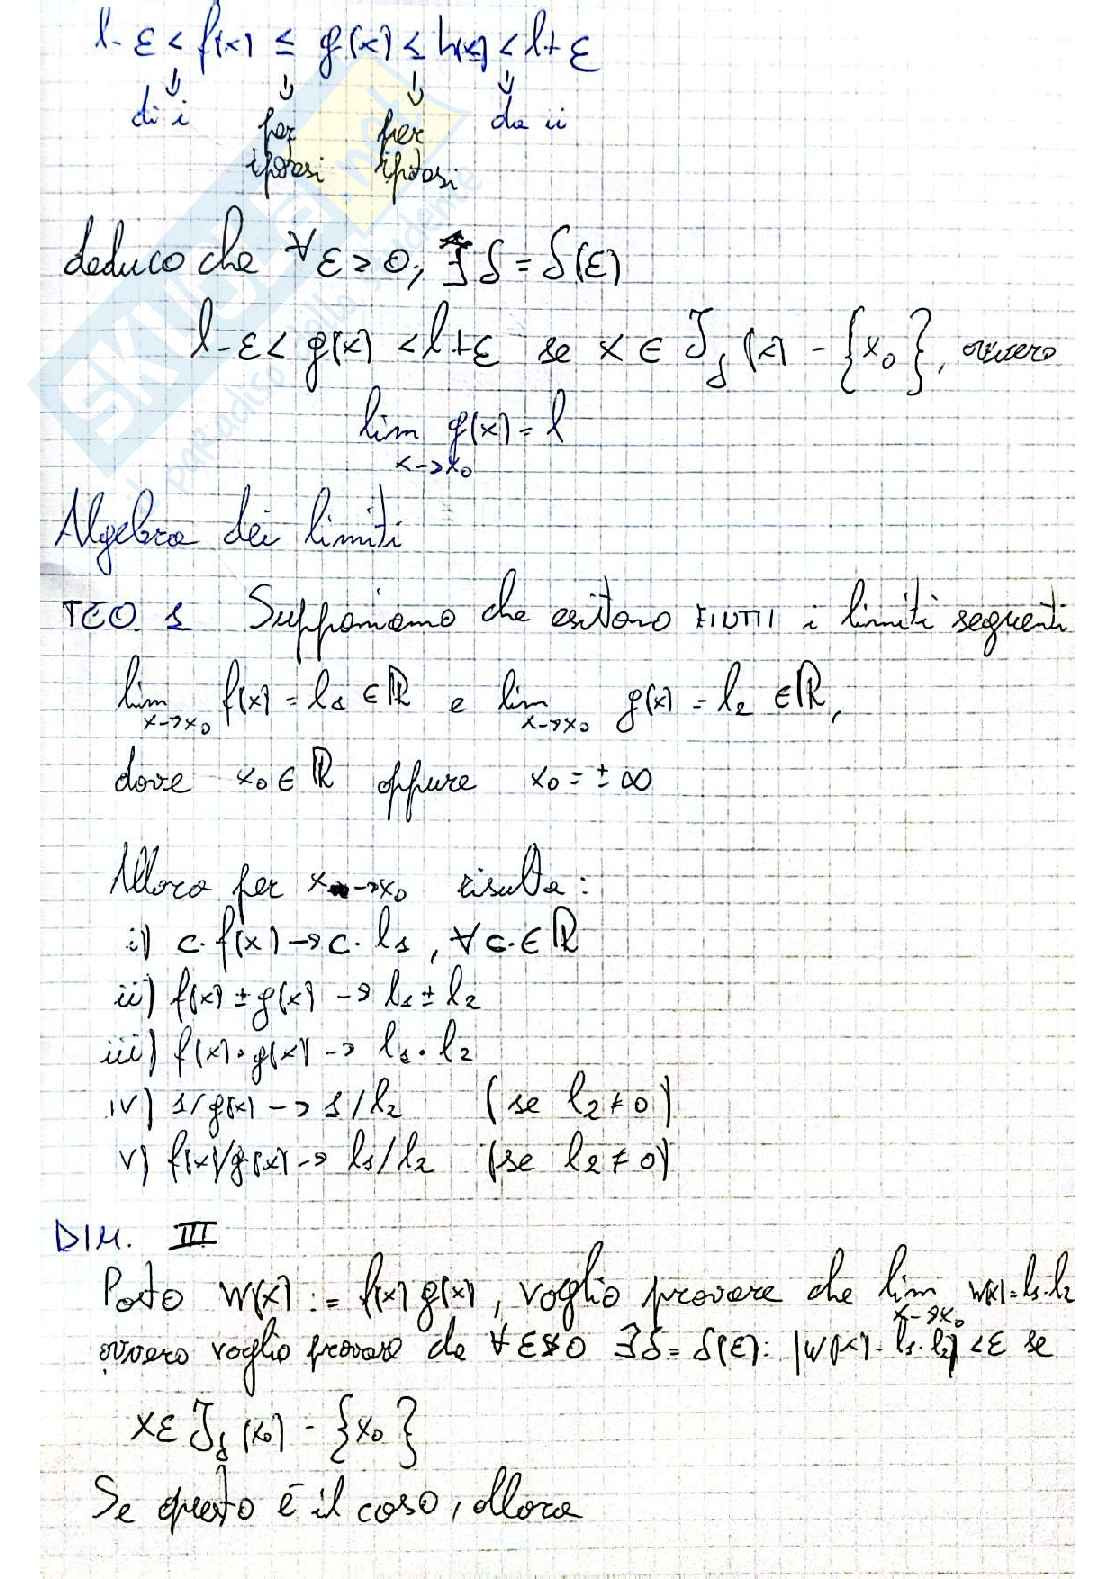 l-ε < f(x) ≤ g(x) ≤ h(x) < l+ε
⇓ ⇓ ⇓ ⇓
di i per per da ii
ipotesi ipotesi
deduco che ∀ε>0, ∃ δ = δ(ε)
l-ε < g(x) < l+ε se x ∈ J_δ(x) - {x₀}, ovvero
lim g(x) = l
x->x₀
Algebra dei limiti
TEO. 1 Supponiamo che esistano FINITI i limiti seguenti
lim f(x) = l₁ ∈ ℝ e lim g(x) = l₂ ∈ ℝ,
x->x₀ x->x₀
dove x₀ ∈ ℝ oppure x₀ = ± ∞
Allora per x->x₀ risulta:
i) c·f(x) -> c·l₁, ∀ c ∈ ℝ
ii) f(x) ± g(x) -> l₁ ± l₂
iii) f(x)·g(x) -> l₁·l₂
iv) 1/g(x) -> 1/l₂ (se l₂ ≠ 0)
v) f(x)/g(x) -> l₁/l₂ (se l₂ ≠ 0)
DIM. III
Posto w(x) := f(x) g(x), voglio provare che lim w(x) = l₁·l₂
x->x₀
ovvero voglio provare che ∀ ε>0 ∃δ = δ(ε): |w(x) - l₁·l₂| < ε se
x ∈ J_δ(x₀) - {x₀}
Se questo è il caso, allora
SKUOLA.net
il paradiso dello studente